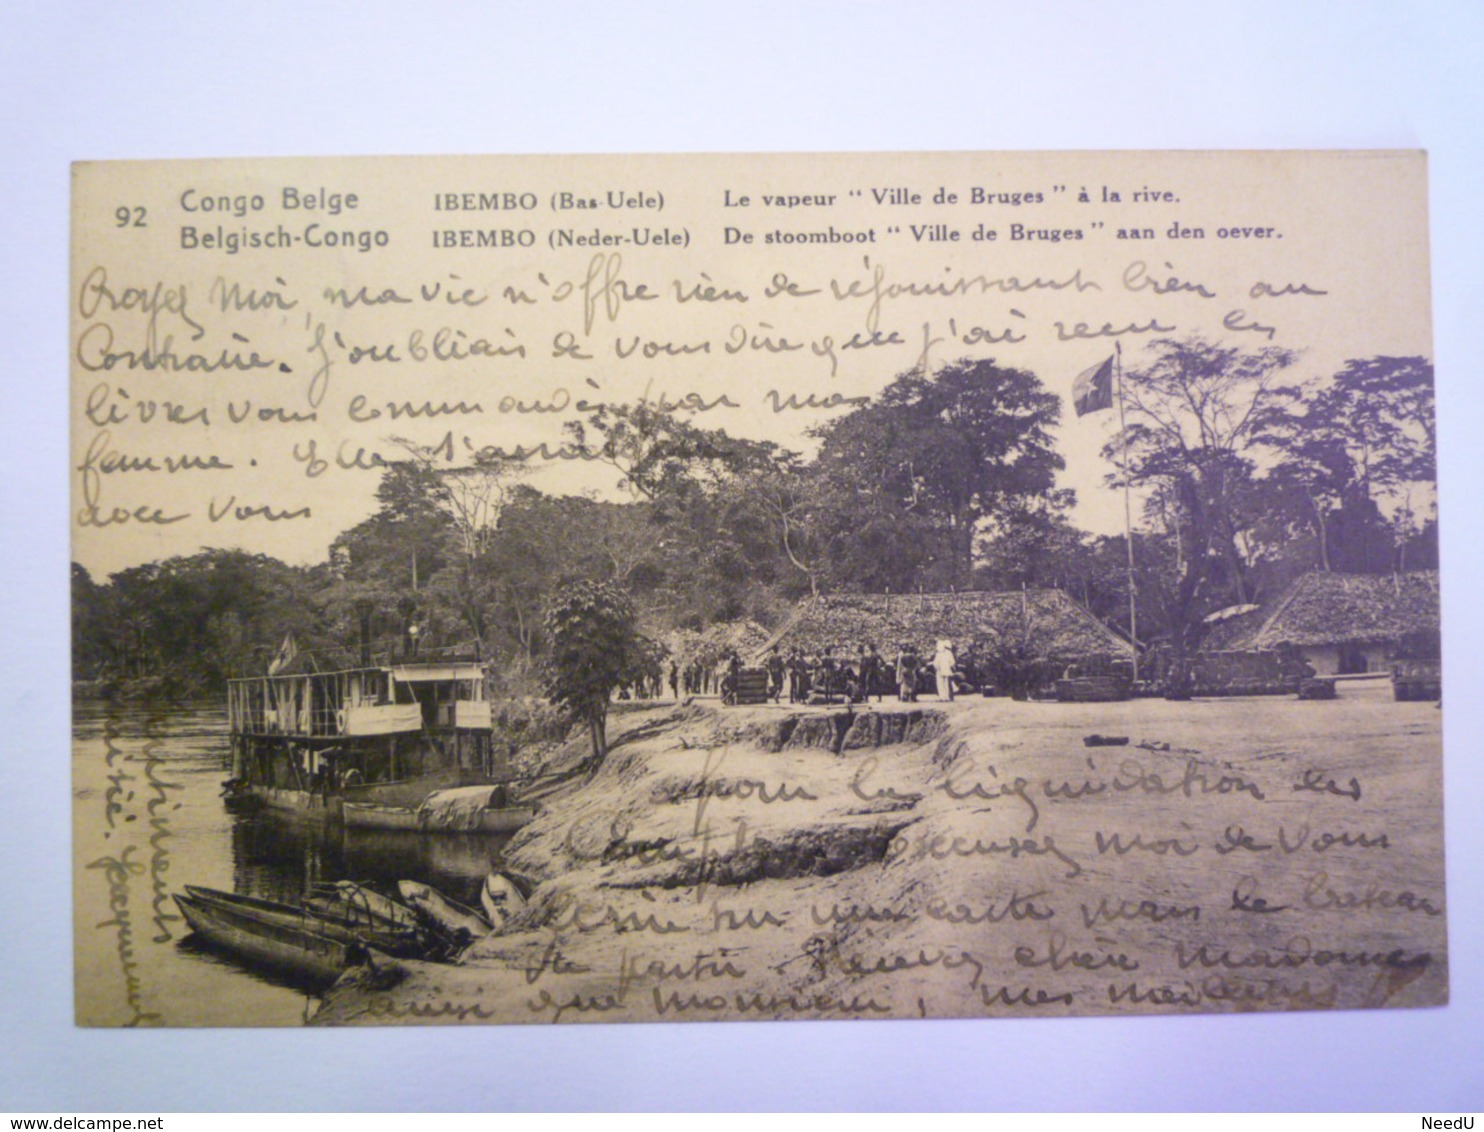 92 Congo Belge IBEMBO (Bas-Uele) Le vapeur “ Ville de Bruges ” à la rive.
Belgisch-Congo IBEMBO (Neder-Uele) De stoomboot “ Ville de Bruges ” aan den oever.
Croyez moi, ma vie n'offre rien de réjouissant bien au
Contraire. J'oubliais de vous dire que j'ai reçu les
livres vous commandés par ma
femme. Elle s'arrangera
avec vous
pour la liquidation des
Comptes. Excusez moi de vous
écrire sur une carte mais le bateau
de partir. Recevez chère Madame
ainsi que monsieur, mes meilleurs
sentiments
amitié.
delcampe.net
NeedU